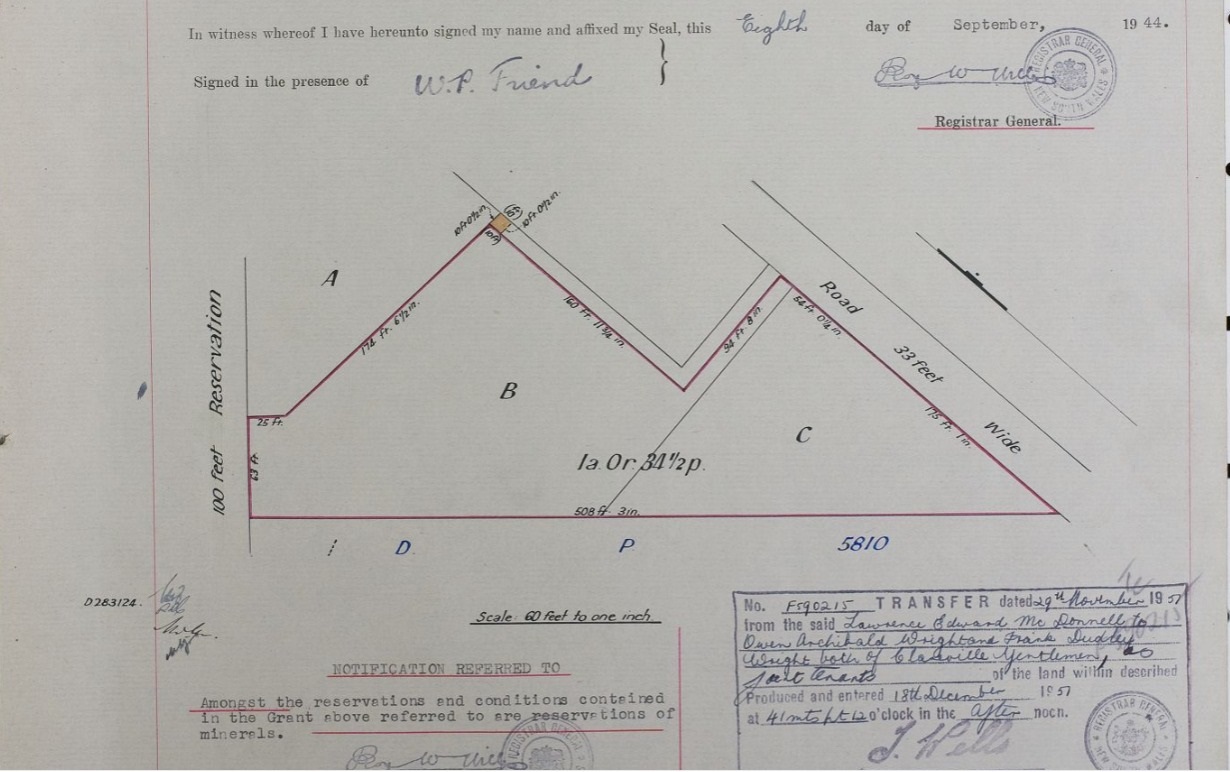 In witness whereof I have hereunto signed my name and affixed my Seal, this Eighth day of September, 1944.
Signed in the presence of W.P. Friend
REGISTRAR GENERAL
NEW SOUTH WALES
Registrar General.
10ft 0½in.
(10ft)
10ft 0½in.
(10ft)
A
174 ft. 6½in.
160 ft. 11¾in.
94 ft 8 in.
54 ft. 0¼in.
Road
33 feet
Wide
175 ft. 1in.
100 feet Reservation
25 ft.
63 ft.
B
C
1a. 0r. 34½p.
508 ft. 3in.
D P 5810
D283124.
Scale: 60 feet to one inch.
NOTIFICATION REFERRED TO
Amongst the reservations and conditions contained
in the Grant above referred to are reservations of
minerals.
REGISTRAR GENERAL
No. F590215 TRANSFER dated 29th November 1951
from the said Lawrence Edward McDonnell to
Owen Archibald Wright and Frank Dudley
Wright both of Gentlemen, as
joint tenants of the land within described
Produced and entered 18th December 1951
at 41 mts pt 12 o'clock in the After noon.
J. Wells
REGISTRAR GENERAL